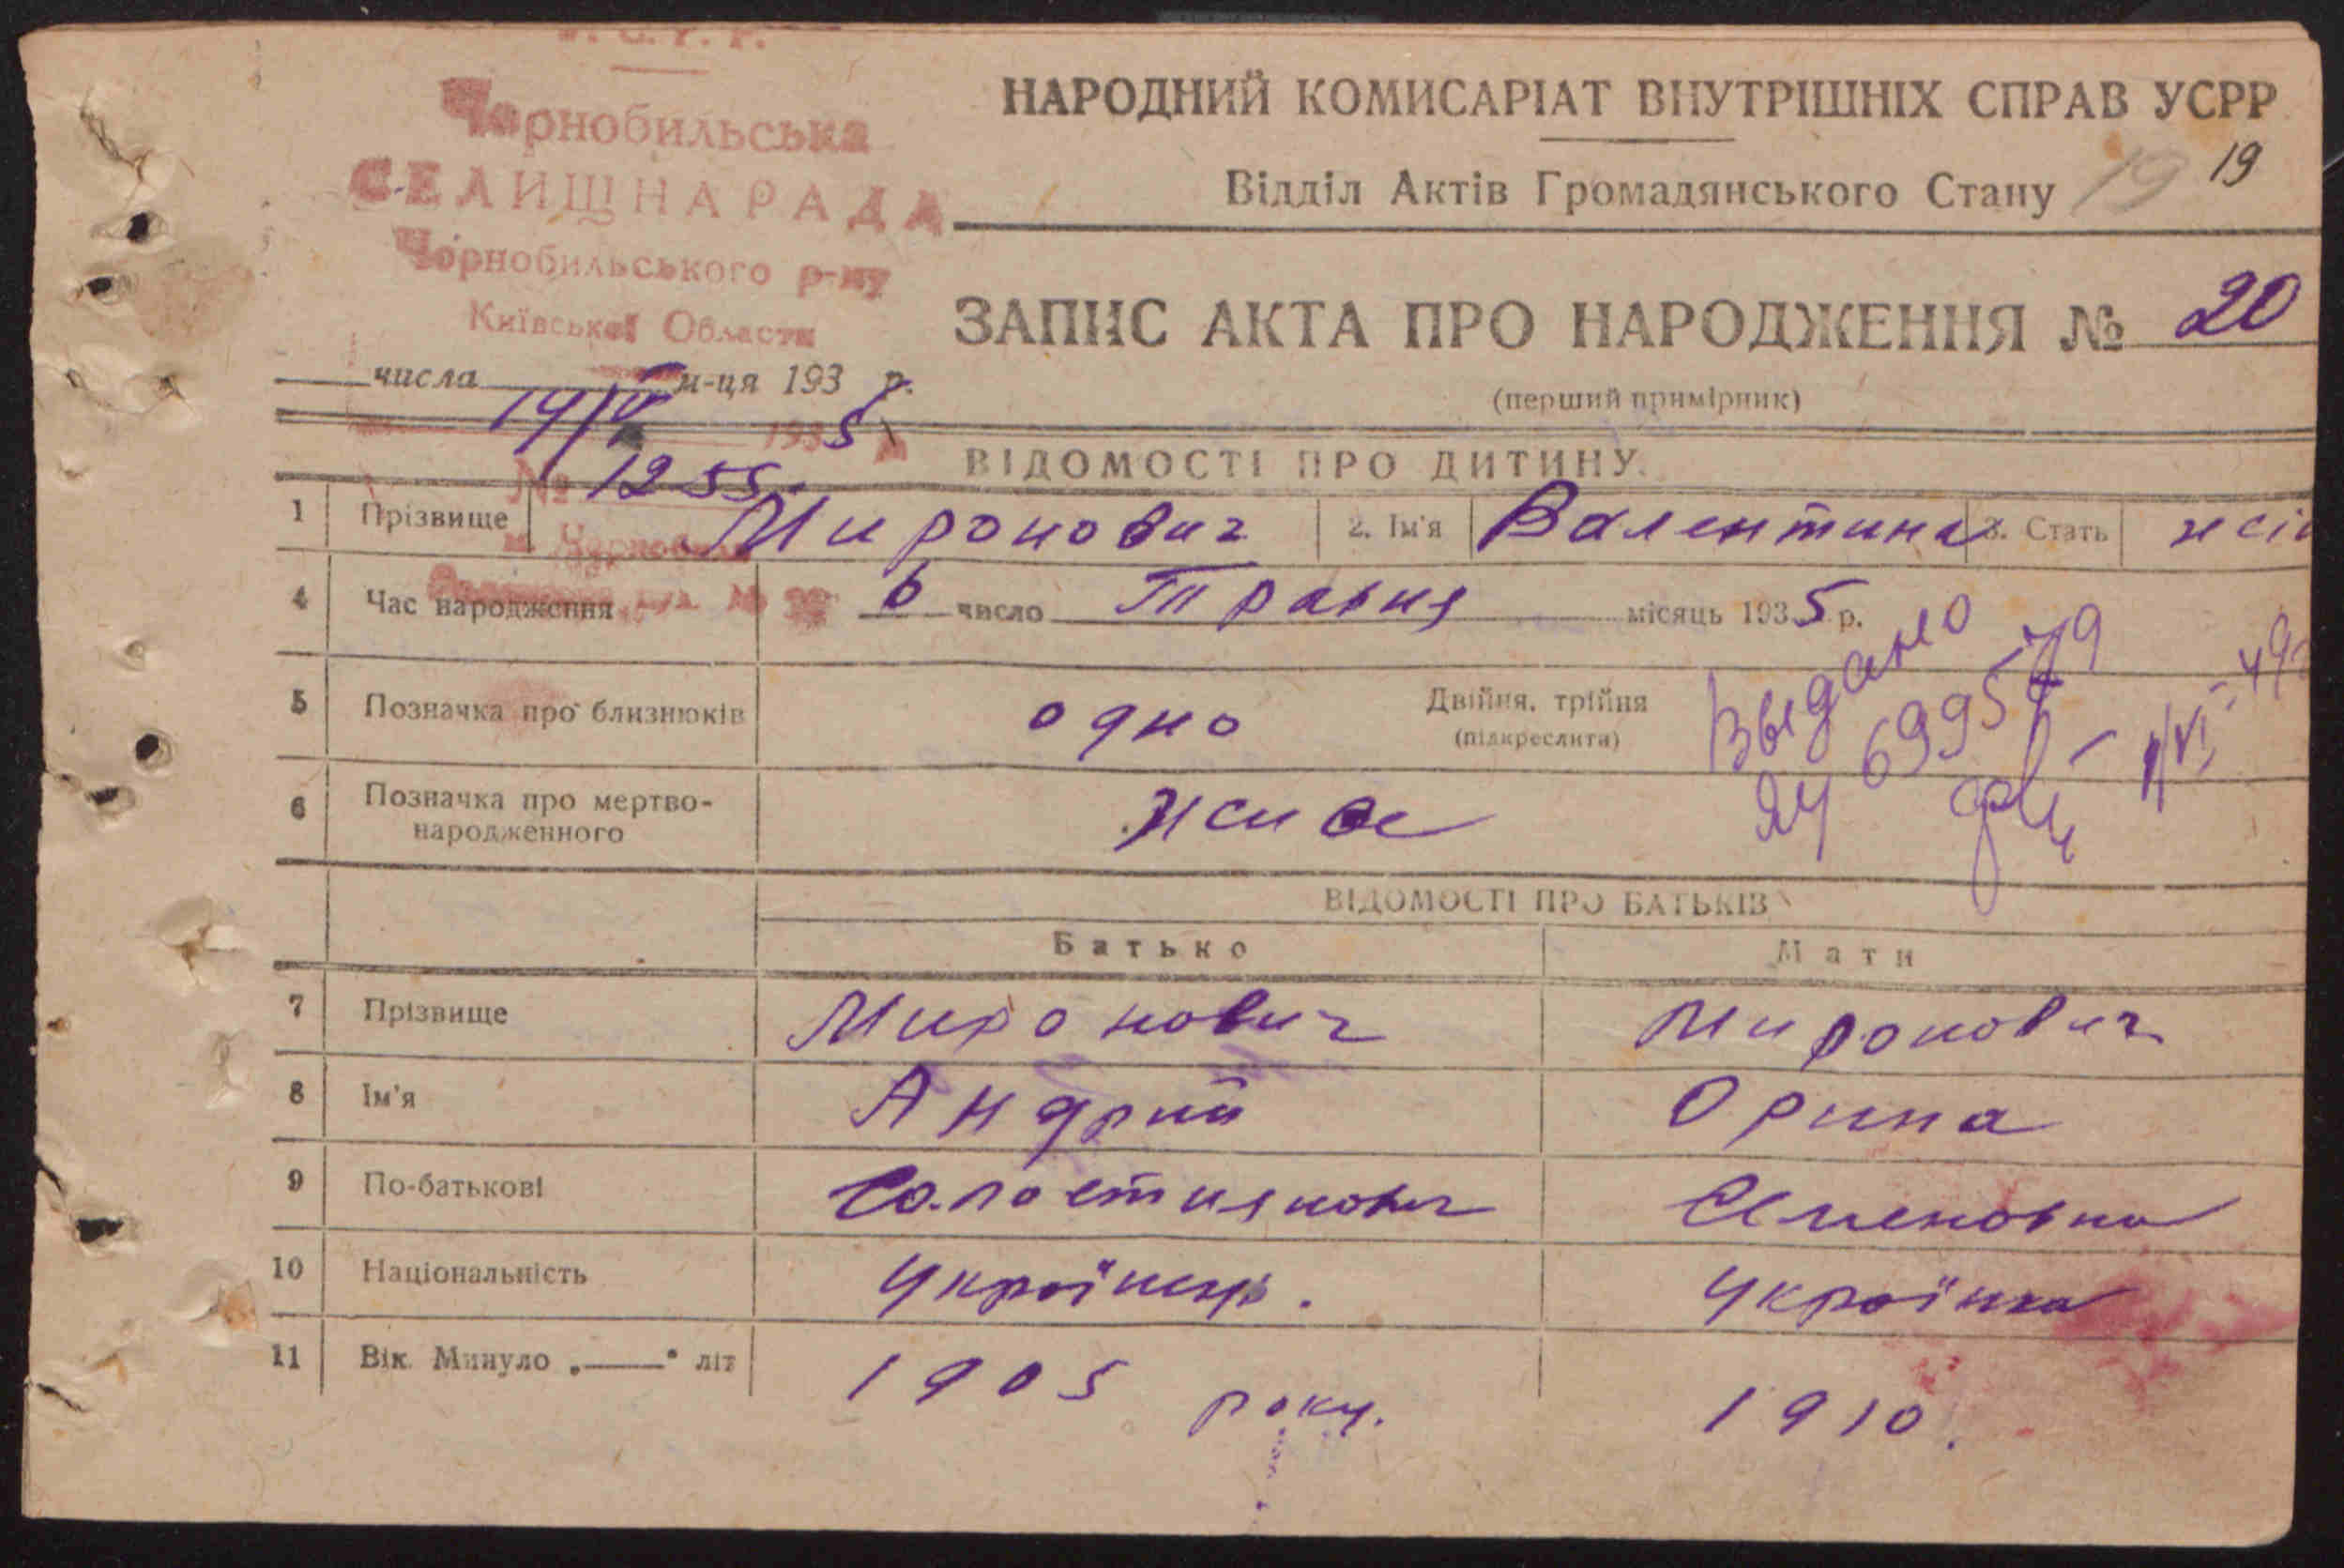 У. С. Р. Р.
Чорнобильська
СЕЛИЩНА РАДА
Чорнобильського р-ну
Київської Области
НАРОДНИЙ КОМИСАРІАТ ВНУТРІШНІХ СПРАВ УСРР
Відділ Актів Громадянського Стану 19 19
ЗАПИС АКТА ПРО НАРОДЖЕННЯ № 20
(перший примірник)
числа м-ця 193 р.
19/V 1935
№ 1255.
ВІДОМОСТІ ПРО ДИТИНУ.
1 Прізвище Миронович 2. Ім'я Валентина 3. Стать жін
4 Час народження 6 число Травня місяць 1935 р.
5 Позначка про близнюків одно Двійня, трійня
(підкреслити)
Выдано
6 Позначка про мертво-
народженного живе
ВІДОМОСТІ ПРО БАТЬКІВ
Батько Мати
7 Прізвище Миронович Миронович
8 Ім'я Андрий Орина
9 По-батькові Семеновна
10 Національність Українець. Українка
11 Вік. Минуло „——" літ 1905 року. 1910.